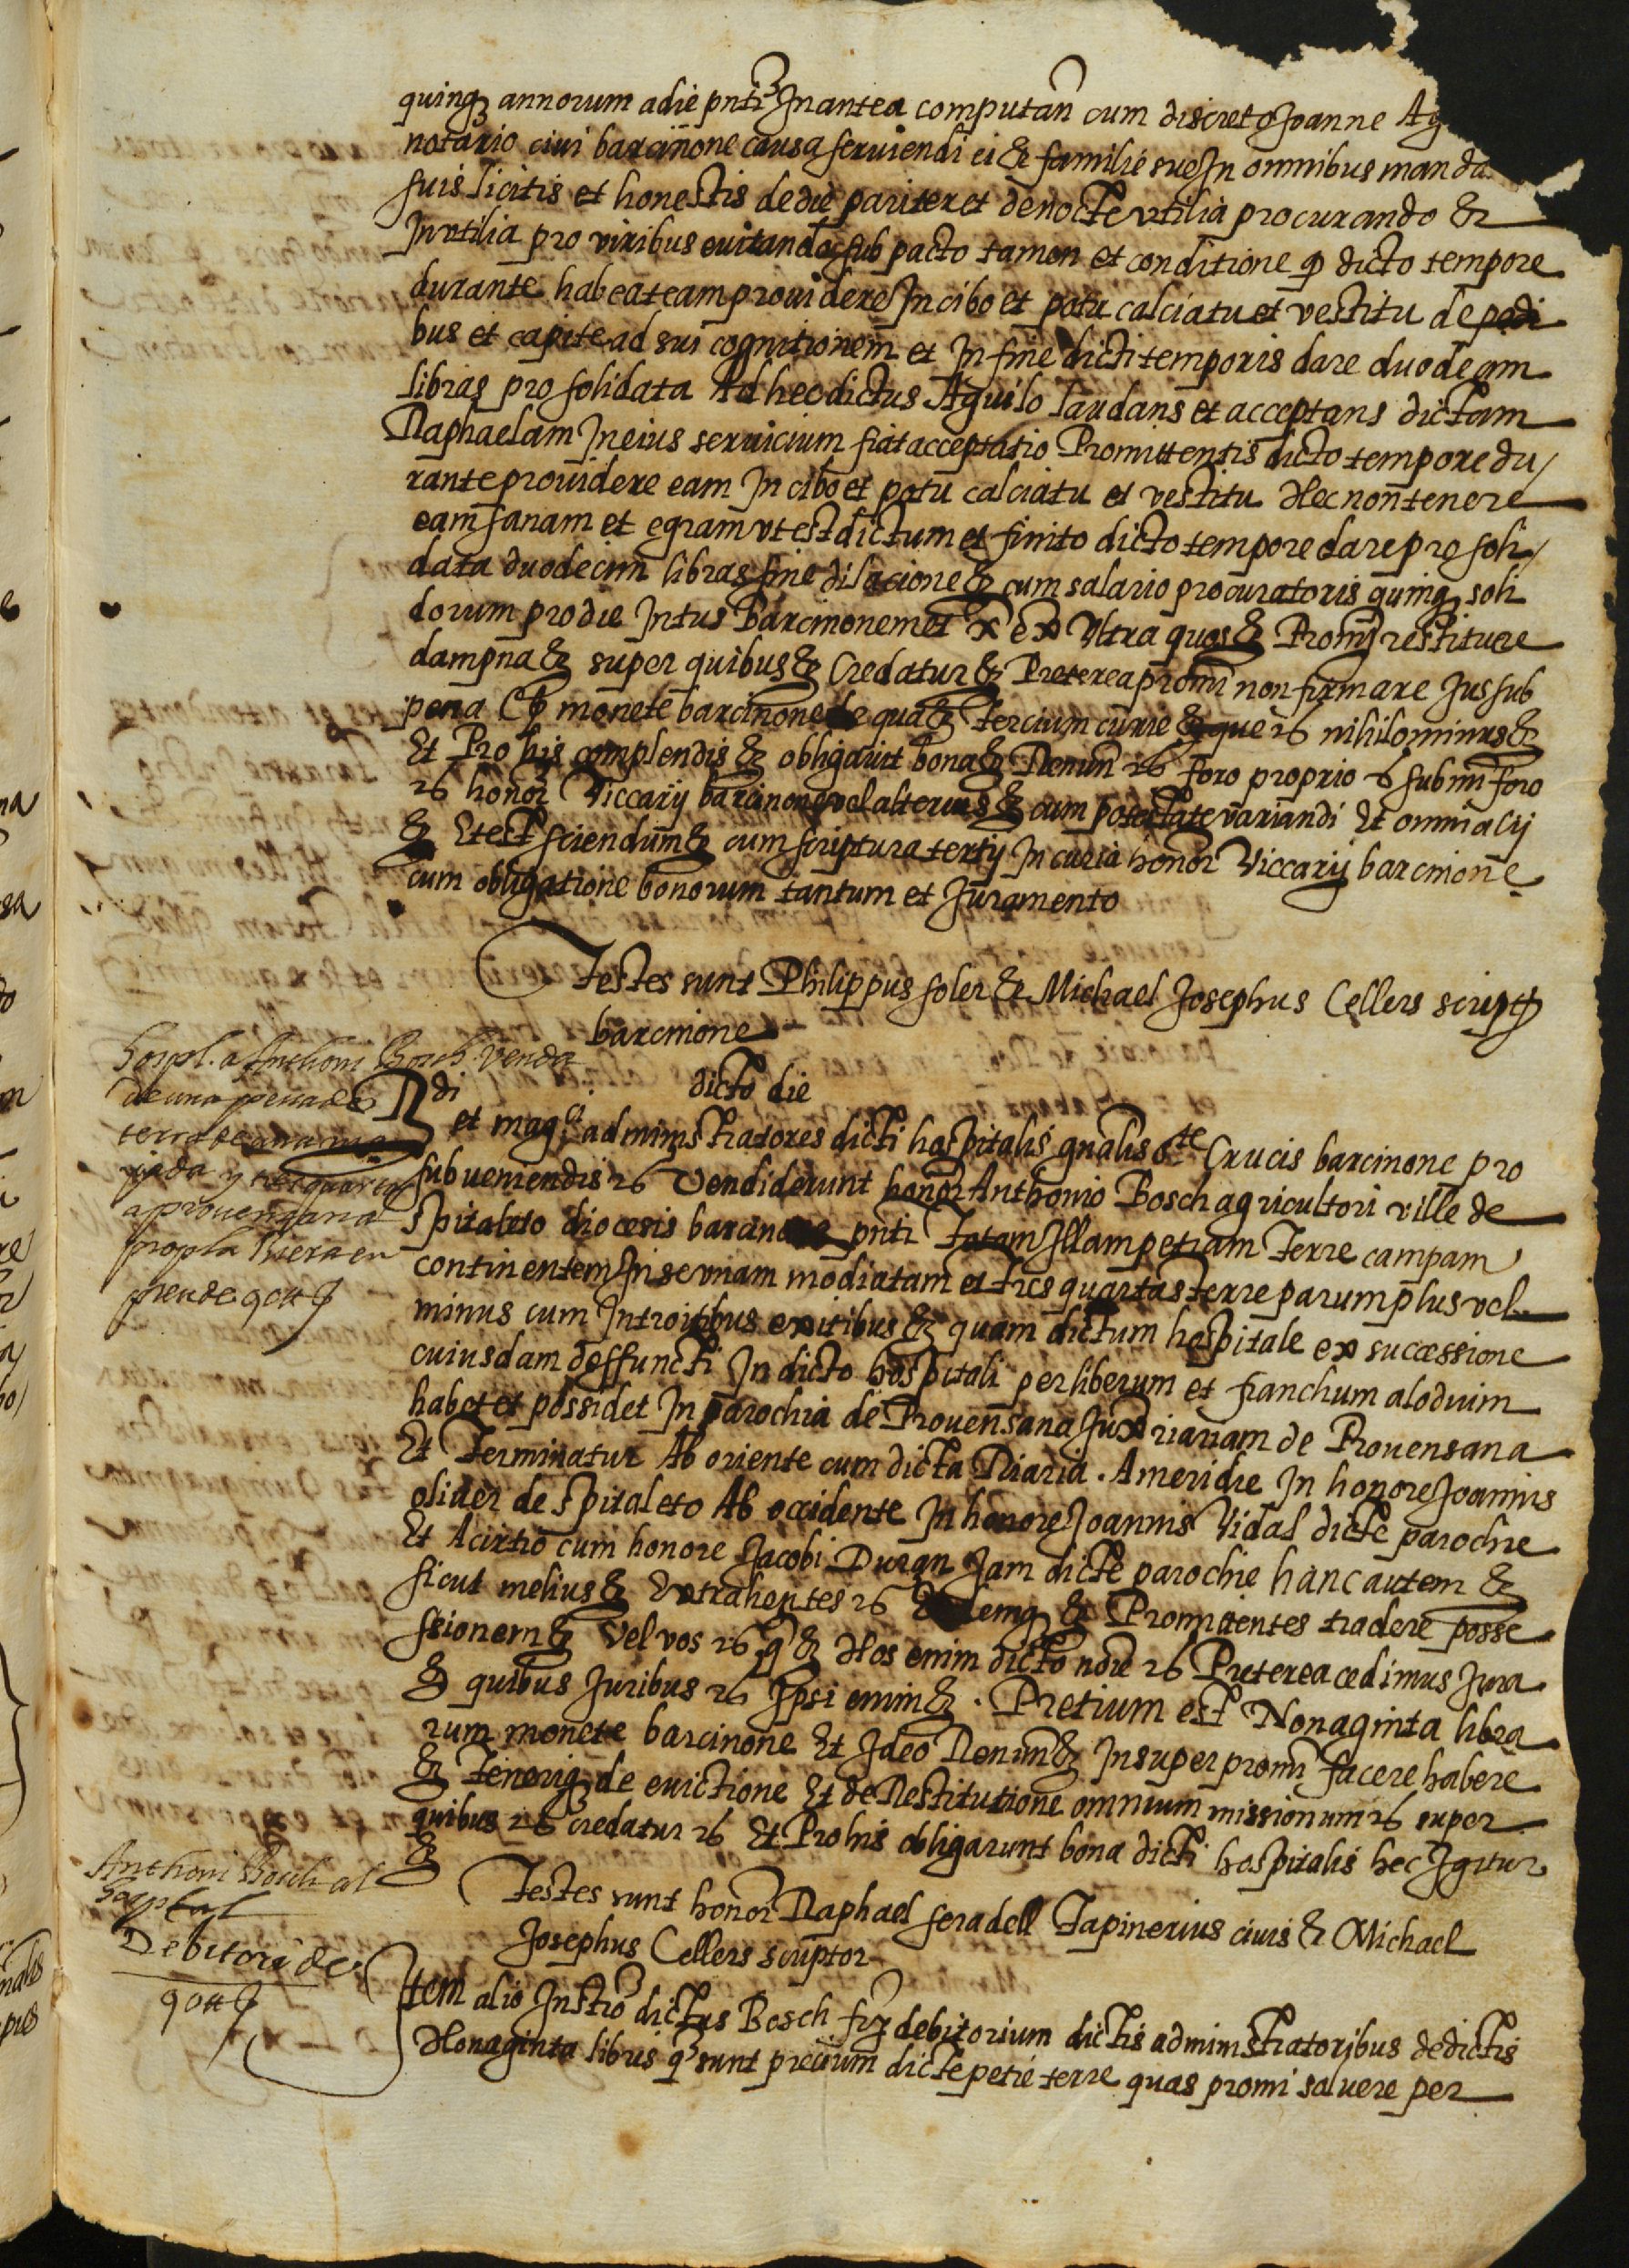 quinq annorum a die pnti In antea computan cum discreto Joanne Ag
notario civi barcinone causa serviendi ei & familie sue In omnibus manda
suis licitis et honestis de die pariter et de nocte utilia procurando &
Inutilia pro viribus euitando sub pacto tamen et conditione q dicto tempore
durante habeat eam prouidere In cibo et potu calciatu et vestitu de pedi
bus et capite ad sui cognitionem et In fine dicti temporis dare duodecim
libras pro solidata Ad hec dictus Aguilo laudans et acceptans dictam
Raphaelam In eius servicium fiat acceptatio Promittentis dicto tempore du/
rante prouidere eam In cibo et potu calciatu et vestitu Nec non tenere
eam sanam et egram ut est dictum et finito dicto tempore dare pro soli/
data duodecim libras sine dilacione & cum salario procuratoris quinq soli
dorum pro die Intus Barcinonem et x ex Ultra quos & Promj restituere
dampna & super quibus & Credatur & Preterea promi non firmare Jus sub
pena monete barcinone qua & tercium curie & que nihilominus &
Et Pro his complendis & obligavit bona & Renun foro proprio submi foro
honor Viccarij barcinone vel alterius & cum potestate variandi Et omnia cij
& Et est sciendum & cum scriptura tertij In curia honor Viccarij barcinone
cum obligatione bonorum tantum et Juramento
Testes sunt Philippus soler & Michael Josephus Cellers script
barcinone
dicto die
Hospl. a Anthoni Bosch venda
de una pessa de
terra de una mu
jada y tres quartas
a provensana
prop la Riera en
preu de 90 ll
Rdi et magci administratores dicti hospitalis gnalis Ste Crucis barcinone pro
subueniendis Vendiderunt honor Anthonio Bosch agricultori ville de
spitaleto diocesis barcinone pnti Totam Illam petiam Terre campam
continentem In se unam modiatam et tres quartas terre parum plus vel
minus cum Introitibus exitibus & quam dictum hospitale ex successione
cuiusdam deffuncti In dicto hospitali per liberum et franchum alodium
habet et possidet In parochia de Prouensana Juxta riariam de Prouensana
Et Terminatur Ab oriente cum dicta Riaria. A meridie In honore Joannis
oliuer de spitaleto Ab occidente In honore Joannis Vidal dicte parochie
Et A cirtio cum honore Jacobi Duran Jam dicte parochie hanc autem &
sicut melius & Extrahentes & Promittentes tradere posse
ssionem & Vel vos q & Nos enim dicto noie Preterea cedimus Jura
& quibus Juribus Ipsi enim &. Pretium est Nonaginta libra
rum monete barcinone Et Ideo Renun & Insuper promi facere habere
& Teneriq de evictione Et de Restitutione omnium missionum super
quibus credatur Et Pro his obligarunt bona dicti hospitalis hec Igitur
&
Testes sunt honor Raphael feradell Tapinerius civis & Michael
Josephus Cellers scriptor
Anthoni Bosch al
hospital
Debitori de
90 ll
Item alio Instro dictus Bosch fir debitorium dictis administratoribus de dictis
Nonaginta libris q sunt precium dicte petie terre quas promi saluere per